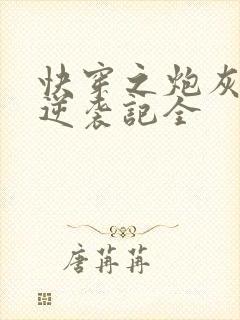 快穿之炮灰
逆袭記全
唐苒苒